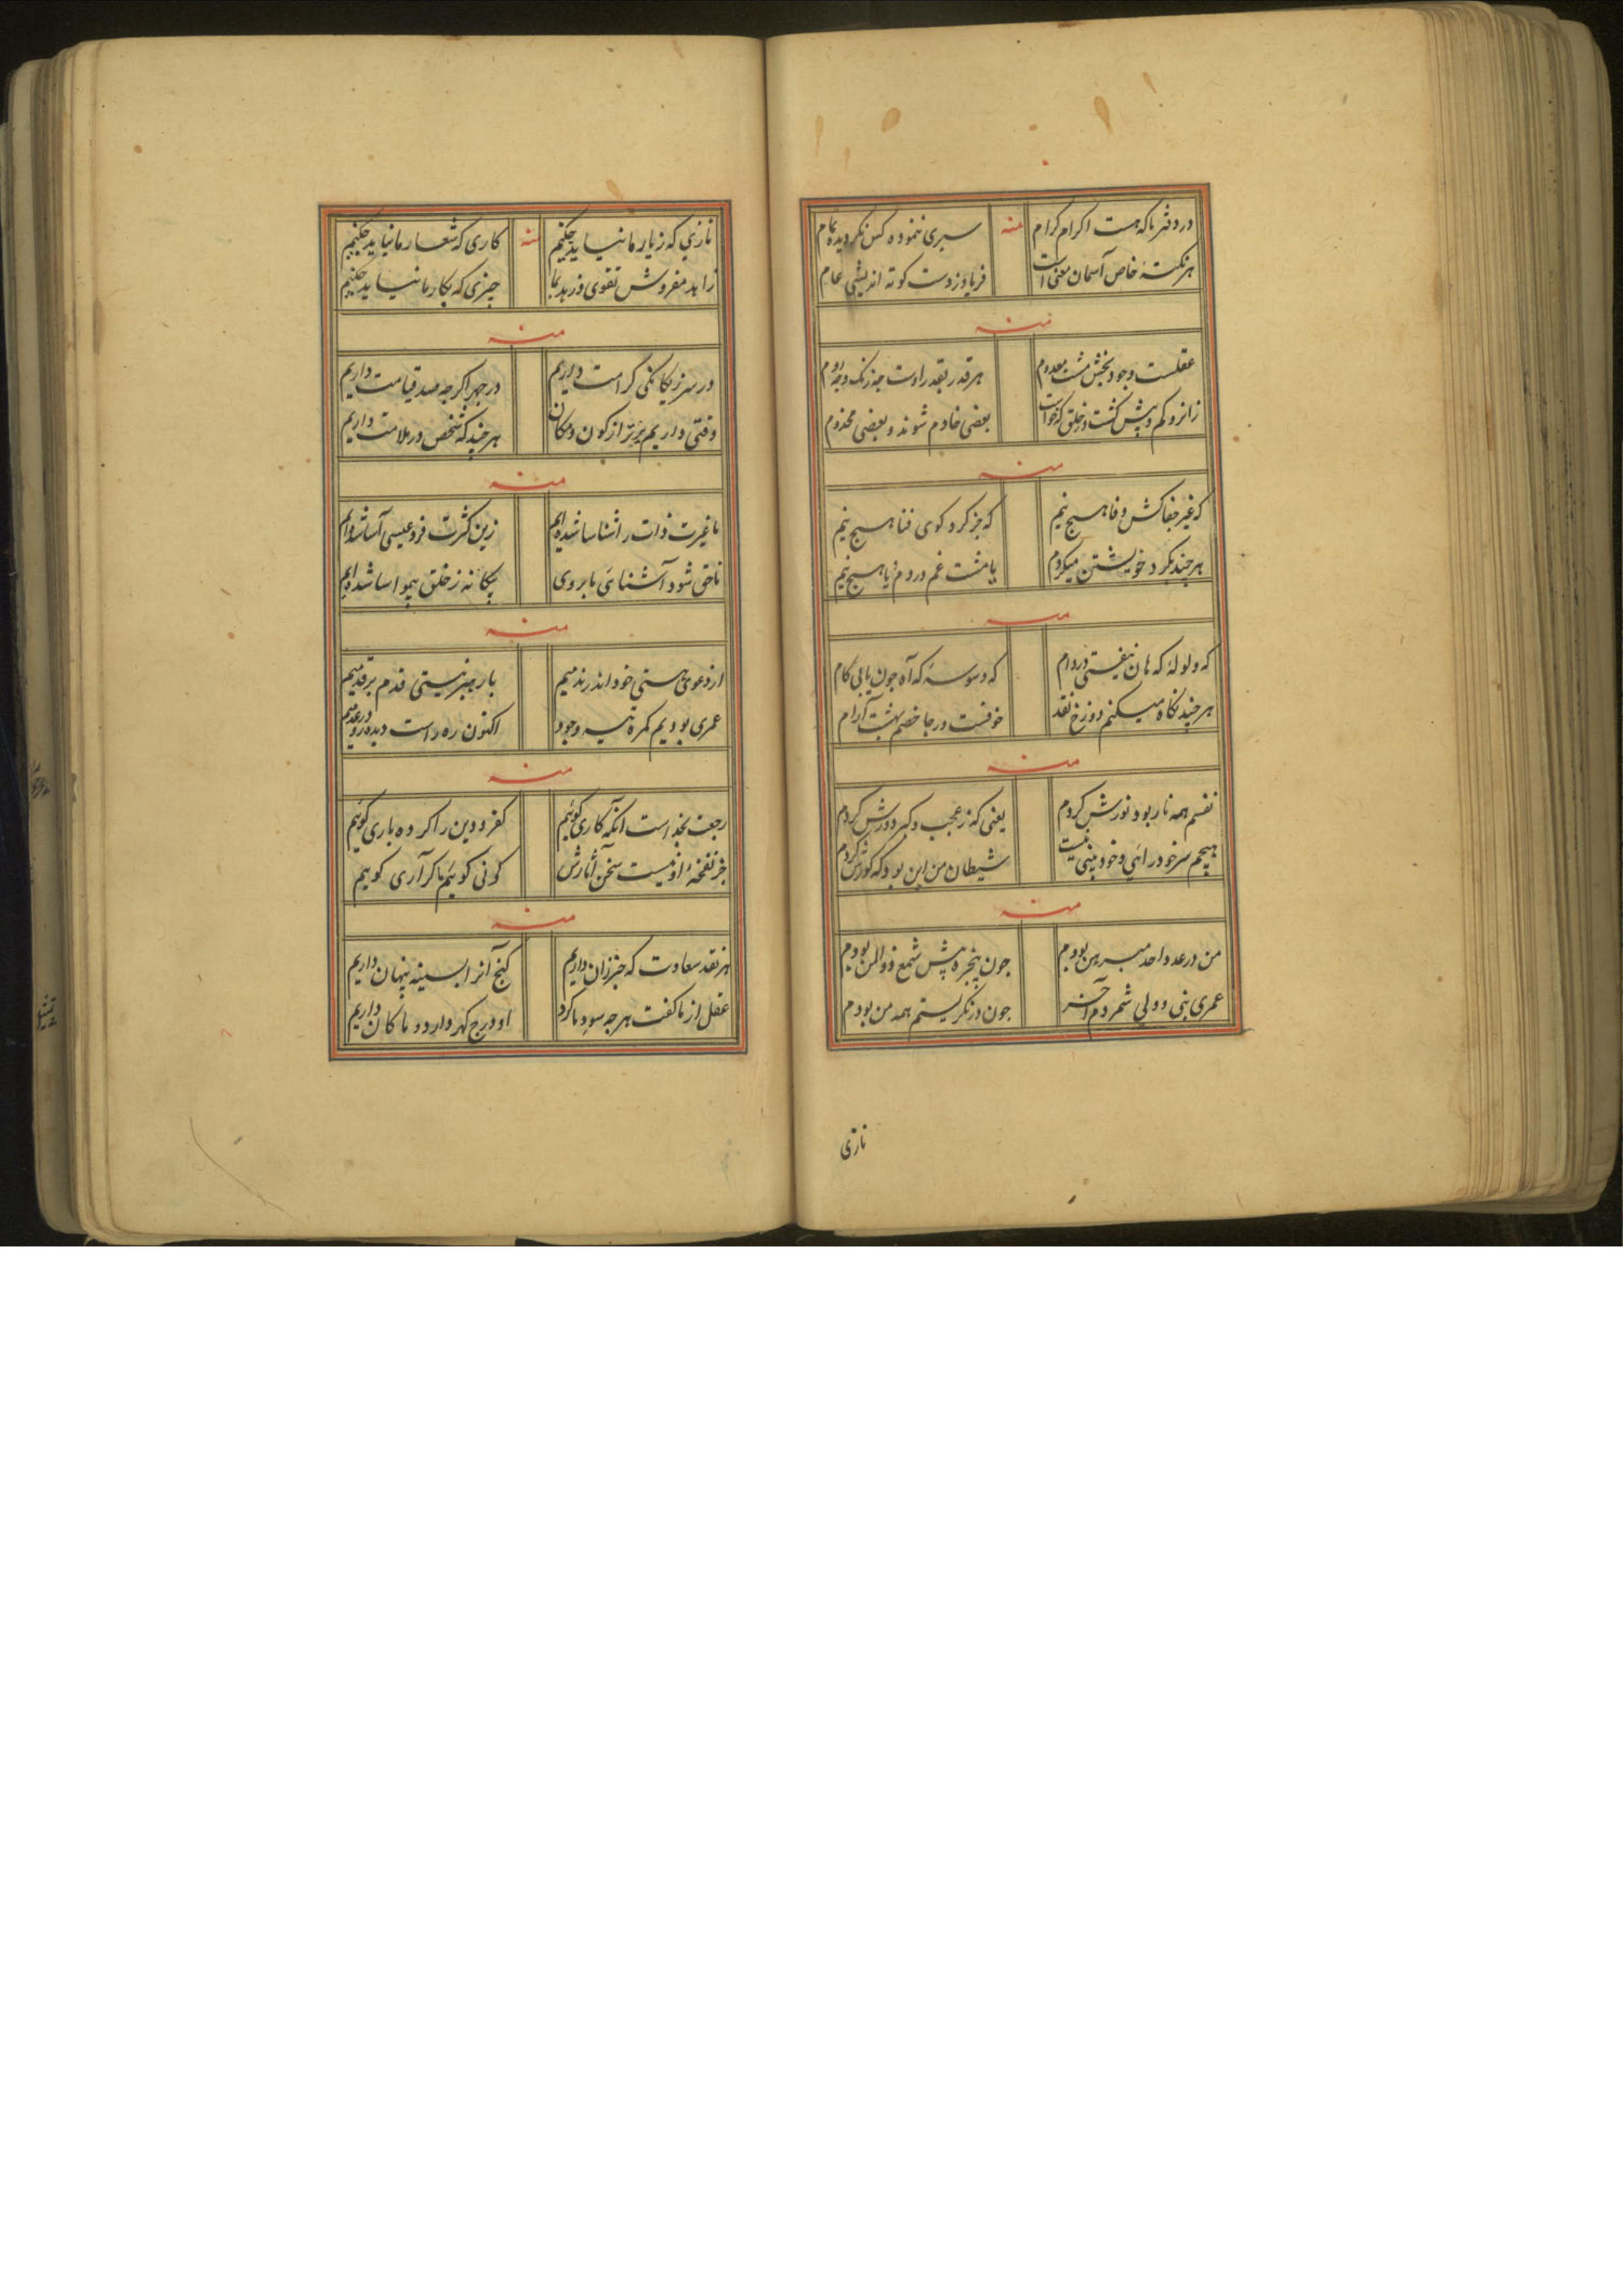 در دفتر ما که هست اکرام کرام منه سیری ننموده کس نکردیده تمام
هر نکتهٔ خاص آسمان معنی است فریاد ز دست کوته اندیشی عام
منه
عقلست وجود بخش مشت معدوم هر قدر بقدر اوست چه زنک و چه روم
زانرو کم و پیش کشت در خلق که خواست بعضی خادم شوند و بعضی مخدوم
منه
که غیر جفاکش وفا هیچ نیم که جز کرد کوی فنا هیچ نیم
هر چند بکرد خویشتن میکردم یا مشت غم و دردم یا هیچ نیم
منه
که ولوله که هان نیفتی در دام که وسوسه که آه چون یابی کام
هر چند نکاه میکنم دوزخ نقد خوفست و رجا خصم بهشت آرام
منه
نفسم همه نار بود نورش کردم یعنی که ز عجب و کبر دورش کردم
هیچم سر خود رائی و خود بینی نیست شیطان من این بود که کورش کردم
منه
من در عدد واحد مبرهن بودم چون پنجره پیش شمع ذوالمن بودم
عمری نبی و ولی شمردم آخر چون درنکریستم همه من بودم
نازی
نازی که ز یار ما نیاید چکنیم منه کاری که شعار ما نیاید چکنیم
زاهد مفروش تقوی و زهد بما چیزی که بکار ما نیاید چکنیم
منه
در سر ز یکانکی کرامت داریم در جهر اکر چه صد قیامت داریم
وقتی داریم برتر از کون و مکان هر چند که شخص در ملامت داریم
منه
با غیرت ذات راشناسا شده‌ایم زین کثرت فرد عیسی آسا شده‌ایم
تا حق شود آشنای ما بر وی بیکانه ز خلق بیمواسا شده‌ایم
منه
از دعوی هستی خود اندر ندمیم بار هبر نیستی قدم بر قدمیم
عمری بودیم کمره تیه وجود اکنون ره راست دیده رو در عدمیم
منه
رجعت بخداست آنکه کاری کوئیم کفر و دین را کر ره باری کوئیم
جز نفخهٔ او نیست سخن آثارش کونی کوئیم تا کر آری کوئیم
منه
هر نقد سعادت که خبر زان داریم کنج آنرا بسینه پنهان داریم
عقل از ما کفت هر چه سود ما کرد او درج کهر دارد و ما کان داریم